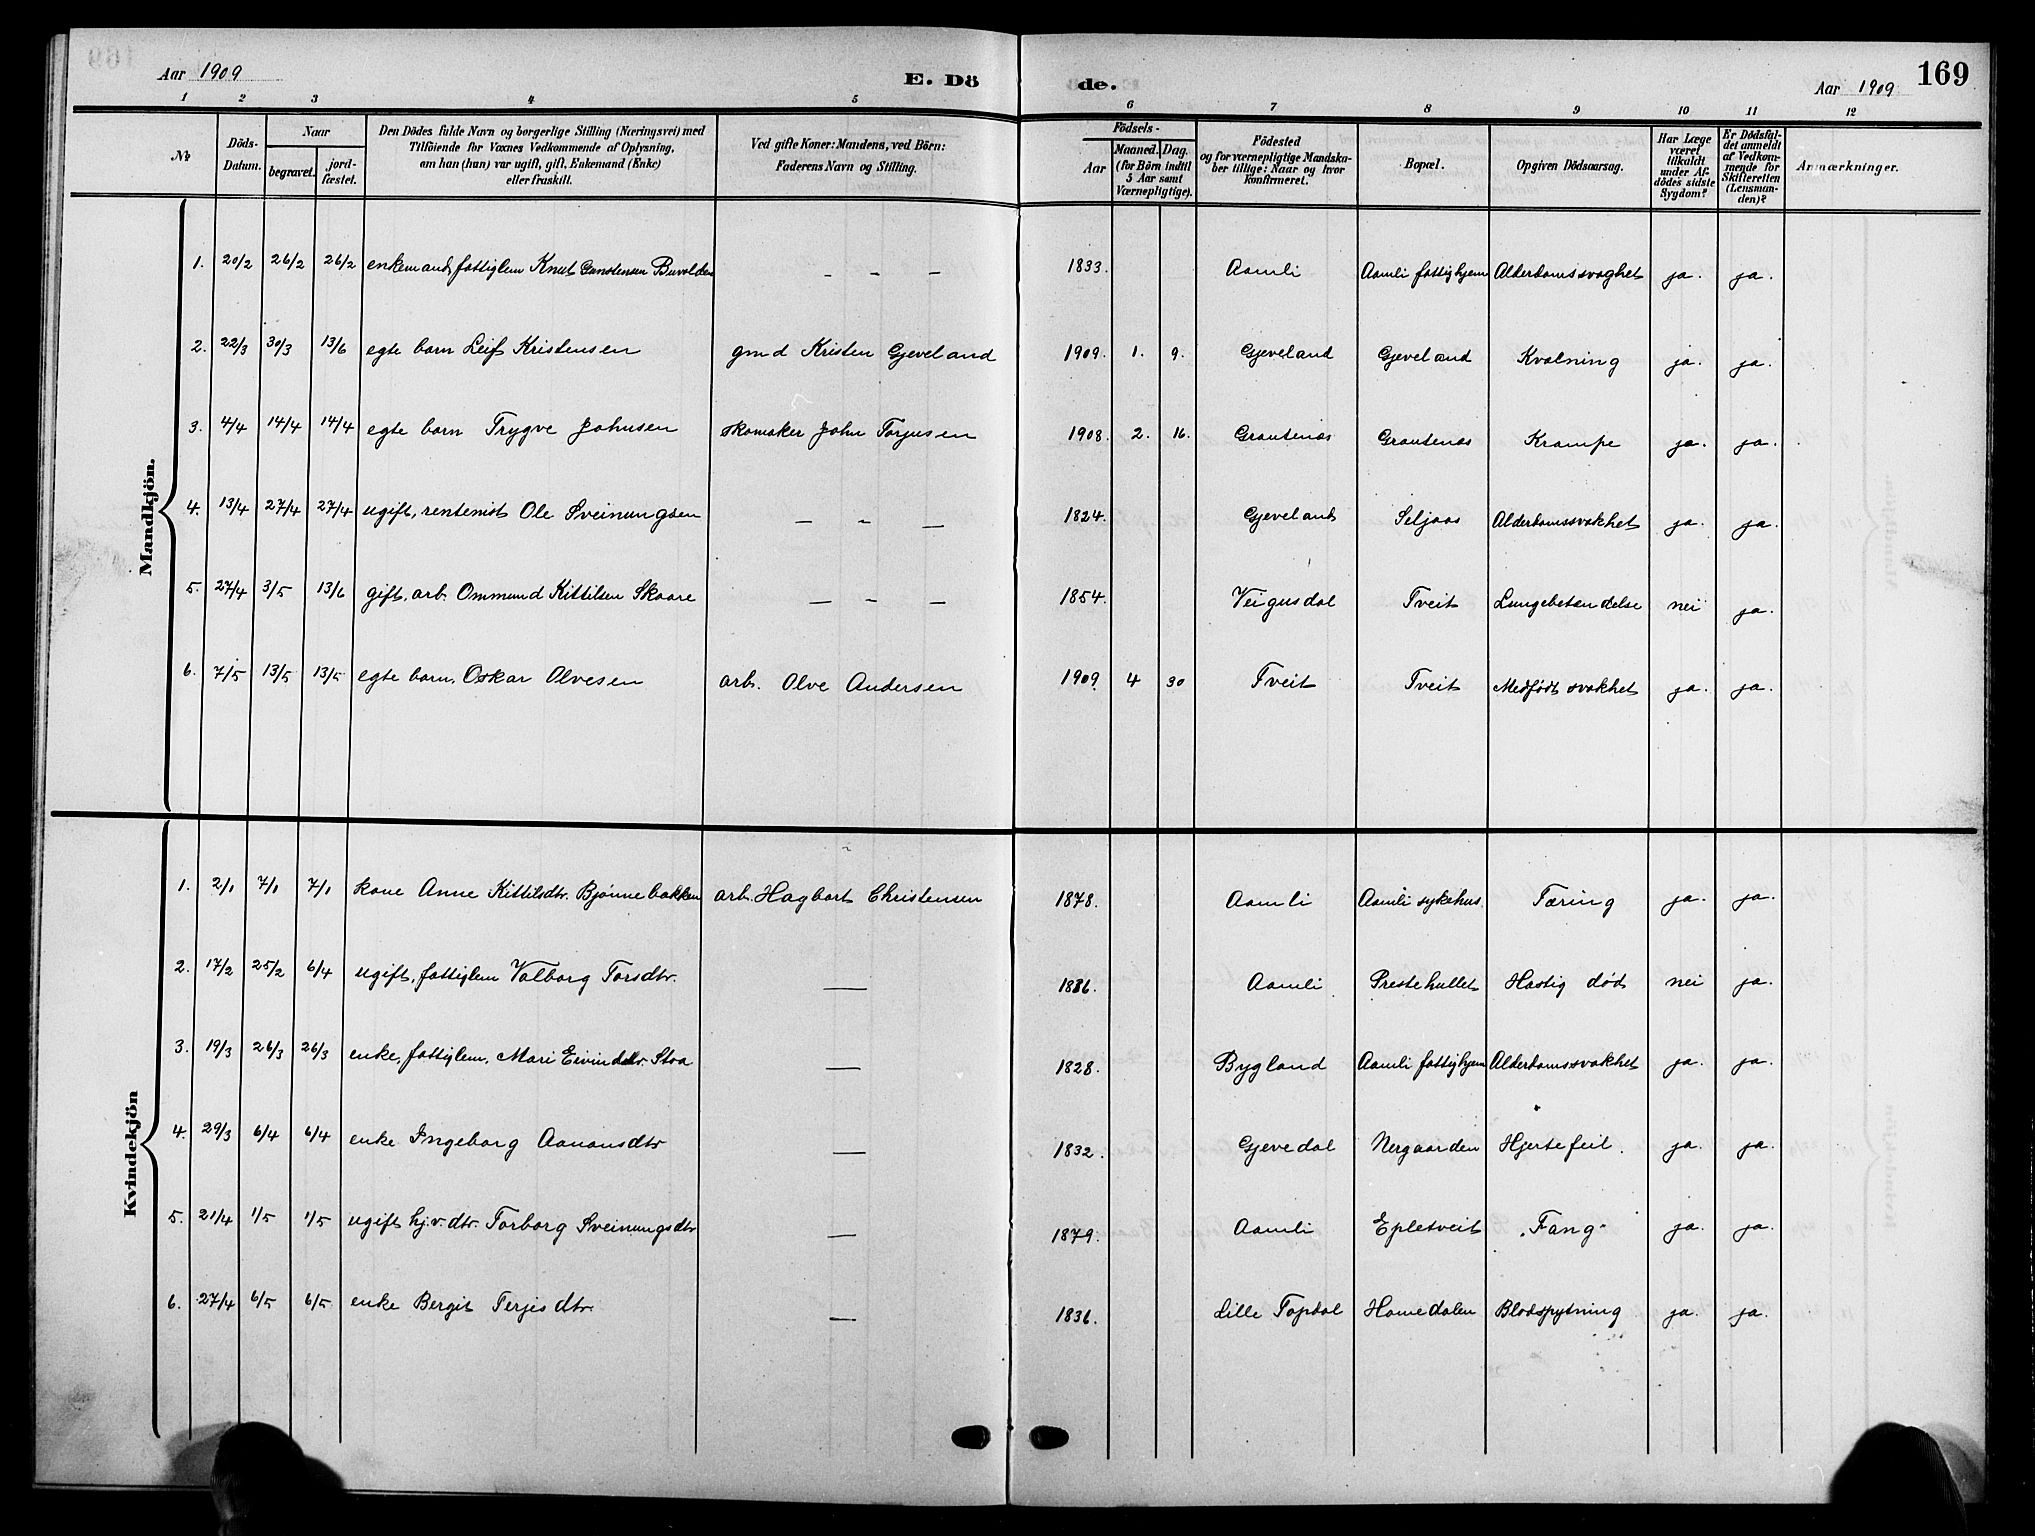 Aar 1909
E. Dö
de.
Aar 1909
169
1 2 3 4 5 6 7 8 9 10 11 12
№
Döds-Datum.
Naar
begravet.
jordfæstet.
Den Dödes fulde Navn og borgerlige Stilling (Næringsvei) med
Tilföiende for Voxnes Vedkommende af Oplysning,
om han (hun) var ugift, gift, Enkemand (Enke)
eller fraskilt.
Ved gifte Koner: Mandens, ved Börn:
Faderens Navn og Stilling.
Födsels-
Aar
Maaned. Dag.
(for Börn indtil
5 Aar samt
Værnepligtige).
Födested
og for værnepligtige Mandskaber tillige: Naar og hvor
Konfirmeret.
Bopæl.
Opgiven Dödsaarsag.
Har Læge
været
tilkaldt
under Afdödes sidste
Sygdom?
Er Dödsfaldet anmeldt
af Vedkommende for
Skifteretten
(Lensmanden)?
Anmærkninger.
Mandkjön.
1. 20/2 26/2 26/2 enkemand, fattiglem Knut Gunstensen Buvolden - - - 1833. Aamli Aamli fattighjem Alderdomssvaghet ja. ja.
2. 22/3 30/3 13/6 egte barn Leif Kristensen gmd Kristen Gjeveland 1909. 1. 9. Gjeveland Gjeveland Kvælning ja. ja.
3. 4/4 14/4 14/4 egte barn Trygve Johnsen skomaker John Torjusen 1908. 2. 16. Grautenæs Grautenæs Krampe ja. ja.
4. 13/4 27/4 27/4 ugift, rentenist Ole Sveinungsen - - - 1824. Gjeveland Seljaas Alderdomssvakhet ja. ja.
5. 27/4 3/5 13/6 gift, arb. Ommund Kittilsen Skaare - - - 1854. Veigusdal Tveit Lungebetændelse nei ja.
6. 7/5 13/5 13/5 egte barn, Oskar Olvesen arb. Olve Andersen 1909. 4 30 Tveit Tveit Medfødt svakhet ja. ja.
Kvindekjön
1. 2/1 7/1 7/1 kone Anne Kittilsdtr. Bjønnebakken arb. Hagbart Christensen 1878. Aamli Aamli sykehus. Tæring ja. ja.
2. 17/2 25/2 6/4 ugift, fattiglem Valborg Torsdtr. — Aamli Prestehullet Hastig død nei ja.
3. 19/3 26/3 26/3 enke, fattiglem, Mari Eivindsdtr. Stoa — 1828. Bygland Aamli fattighjem Alderdomssvakhet ja. ja.
4. 29/3 6/4 6/4 enke Ingeborg Aanonsdtr — 1832. Gjevedal Nergaarden Hjertefeil. ja. ja.
5. 21/4 1/5 1/5 ugift hj.v. dtr. Torborg Sveinungsdtr — 1879. Aamli Epletveit „Fang“ ja. ja.
6. 27/4 6/5 6/5 enke Bergit Terjesdtr. — 1836. Lille Topdal Homedalen Blodspytning ja. ja.